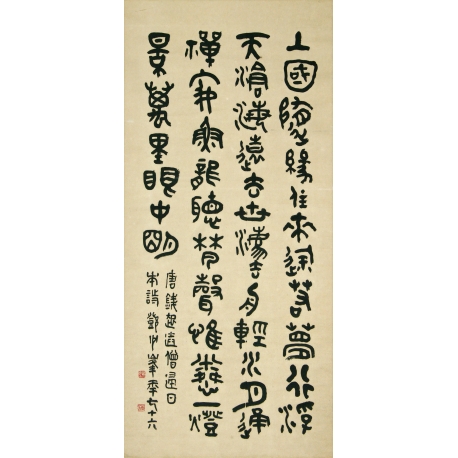 上國隨緣住來途若夢行浮
天滄海遠去世灋舟輕水月通
禪寂魚龍聽梵聲惟憐一燈
景萬里眼中明
唐錢起送僧歸日
本詩 鄧少峯年七十六